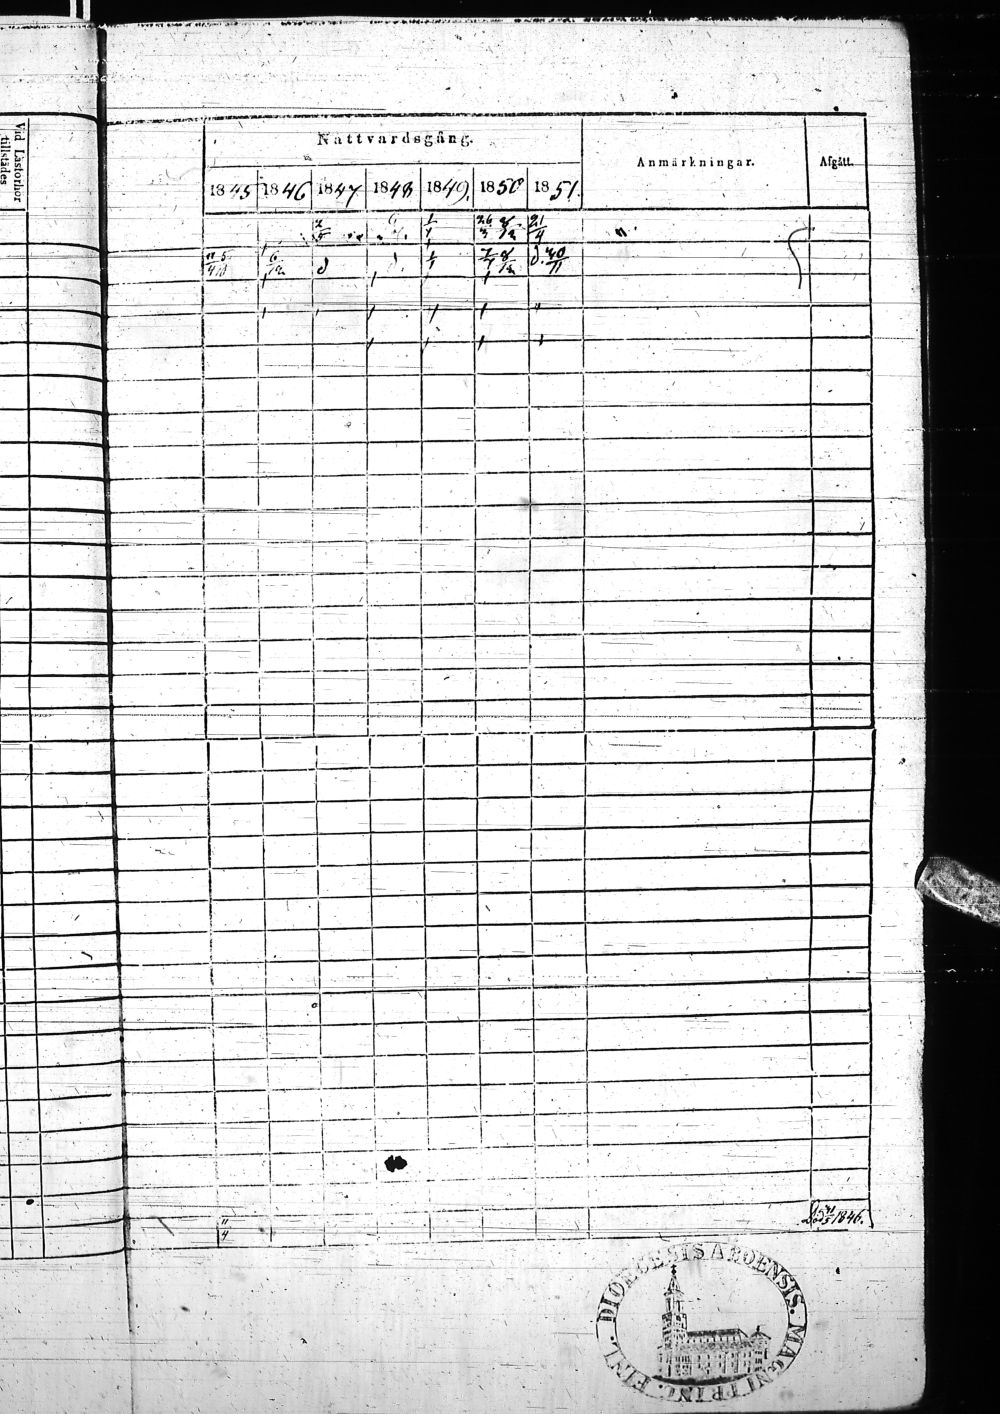 Vid Läsförhör
tillstädes
Nattvardsgång.
Anmärkningar.
Afgått.
1845 1846 1847 1848 1849. 1850 1851.
2/5 1/1 26/3 8/12 21/4 "
11/4 5/10 6/12 d d. 1/1 1/1 8/12 d. 30/11
11/4
Död 1846.
DIOECESIS ABOENSIS. MAGNI PRINC. FINL.